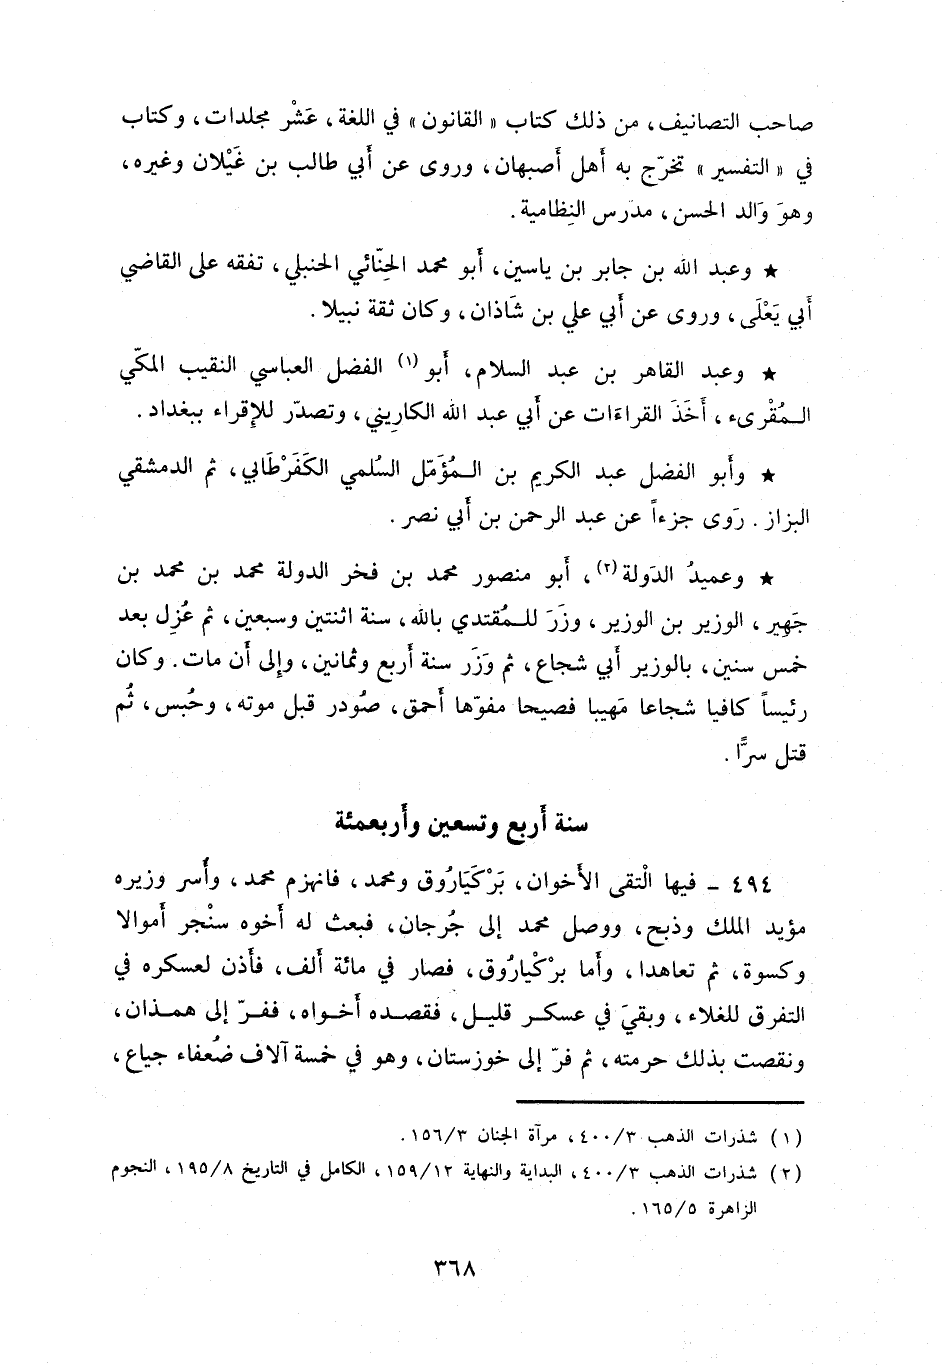 صاحب التصانيف، من ذلك كتاب « القانون » في اللغة، عَشْر مجلدات، وكتاب
في « التفسير » تخرّج به أهل أصبهان، وروى عن أبي طالب بن غَيْلان وغيره،
وهوَ وَالد الحسن، مدرس النِظامية.
★ وعبد الله بن جابر بن ياسين، أبو محمد الحِنّائي الحنبلي، تفقه على القاضي
أبي يَعْلَى، وروى عن أبي علي بن شَاذان، وكان ثقة نبيلا.
★ وعبد القاهر بن عبد السلام، أبو (١) الفضل العباسي النقيب المكّي
المُقْرىء، أخَذَ القراءات عن أبي عبد الله الكارِيني، وتصدّر للإقراء ببغداد.
★ وأبو الفضل عبد الكريم بن المُؤَمّل السُلمي الكَفَرْطَابي، ثم الدمشقي
البزاز. رَوى جزءاً عن عبد الرحمن بن أبي نصر.
★ وعميدُ الدَولة (٢)، أبو منصور محمد بن فخر الدولة محمد بن محمد بن
جَهِير، الوزير بن الوزير، وزَرَ للمُقتدي بالله، سنة اثنتين وسبعين، ثم عُزِل بعد
خمس سنين، بالوزير أبي شجاع، ثم وَزَر سنة أربع وثمانين، وإلى أن مات. وكان
رئيساً كافيا شجاعا مَهيبا فصيحا مفوّها أحمق، صُودر قبل موته، وحُبس، ثُم
قتل سرًّا.
سنة أربع وتسعين وأربعمئة
٤٩٤ - فيها الْتقى الأخوان، بَرْكَيَارُوق ومحمد، فانهزم محمد، وأُسر وزيره
مؤيد الملك وذبح، ووصل محمد إلى جُرجان، فبعث له أخوه سنْجر أموالا
وكسوة، ثم تعاهدا، وأما برْكْيارُوق، فصار في مائة ألف، فأذن لعسكره في
التفرق للغلاء، وبقيَ في عسكر قليل، فقصده أخواه، ففرّ إلى همذان،
ونقصت بذلك حرمته، ثم فرّ إلى خوزستان، وهو في خمسة آلاف ضُعفاء جياع،
(١) شذرات الذهب ٤٠٠/٣، مرآة الجنان ١٥٦/٣.
(٢) شذرات الذهب ٤٠٠/٣، البداية والنهاية ١٥٩/١٢، الكامل في التاريخ ١٩٥/٨، النجوم
الزاهرة ١٦٥/٥.
٣٦٨